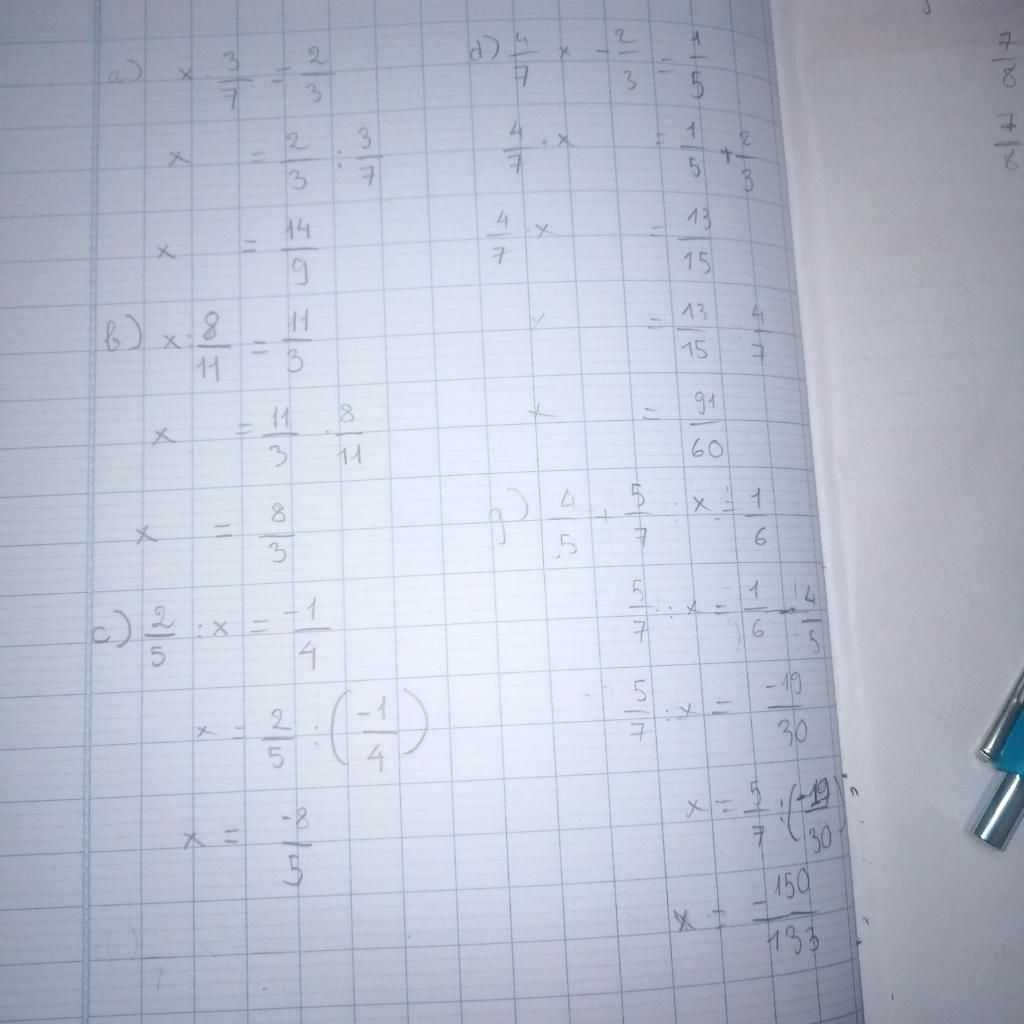 a) x · 3/7 = 2/3
x = 2/3 : 3/7
x = 14/9
b) x : 8/11 = 11/3
x = 11/3 · 8/11
x = 8/3
c) 2/5 : x = -1/4
x = 2/5 : (-1/4)
x = -8/5
d) 4/7 · x - 2/3 = 1/5
4/7 · x = 1/5 + 2/3
4/7 · x = 13/15
x = 13/15 4/7
x = 91/60
g) 4/5 + 5/7 : x = 1/6
5/7 : x = 1/6 - 4/5
5/7 : x = -19/30
x = 5/7 : (-19/30)
x = -150/133
7/8
7/8